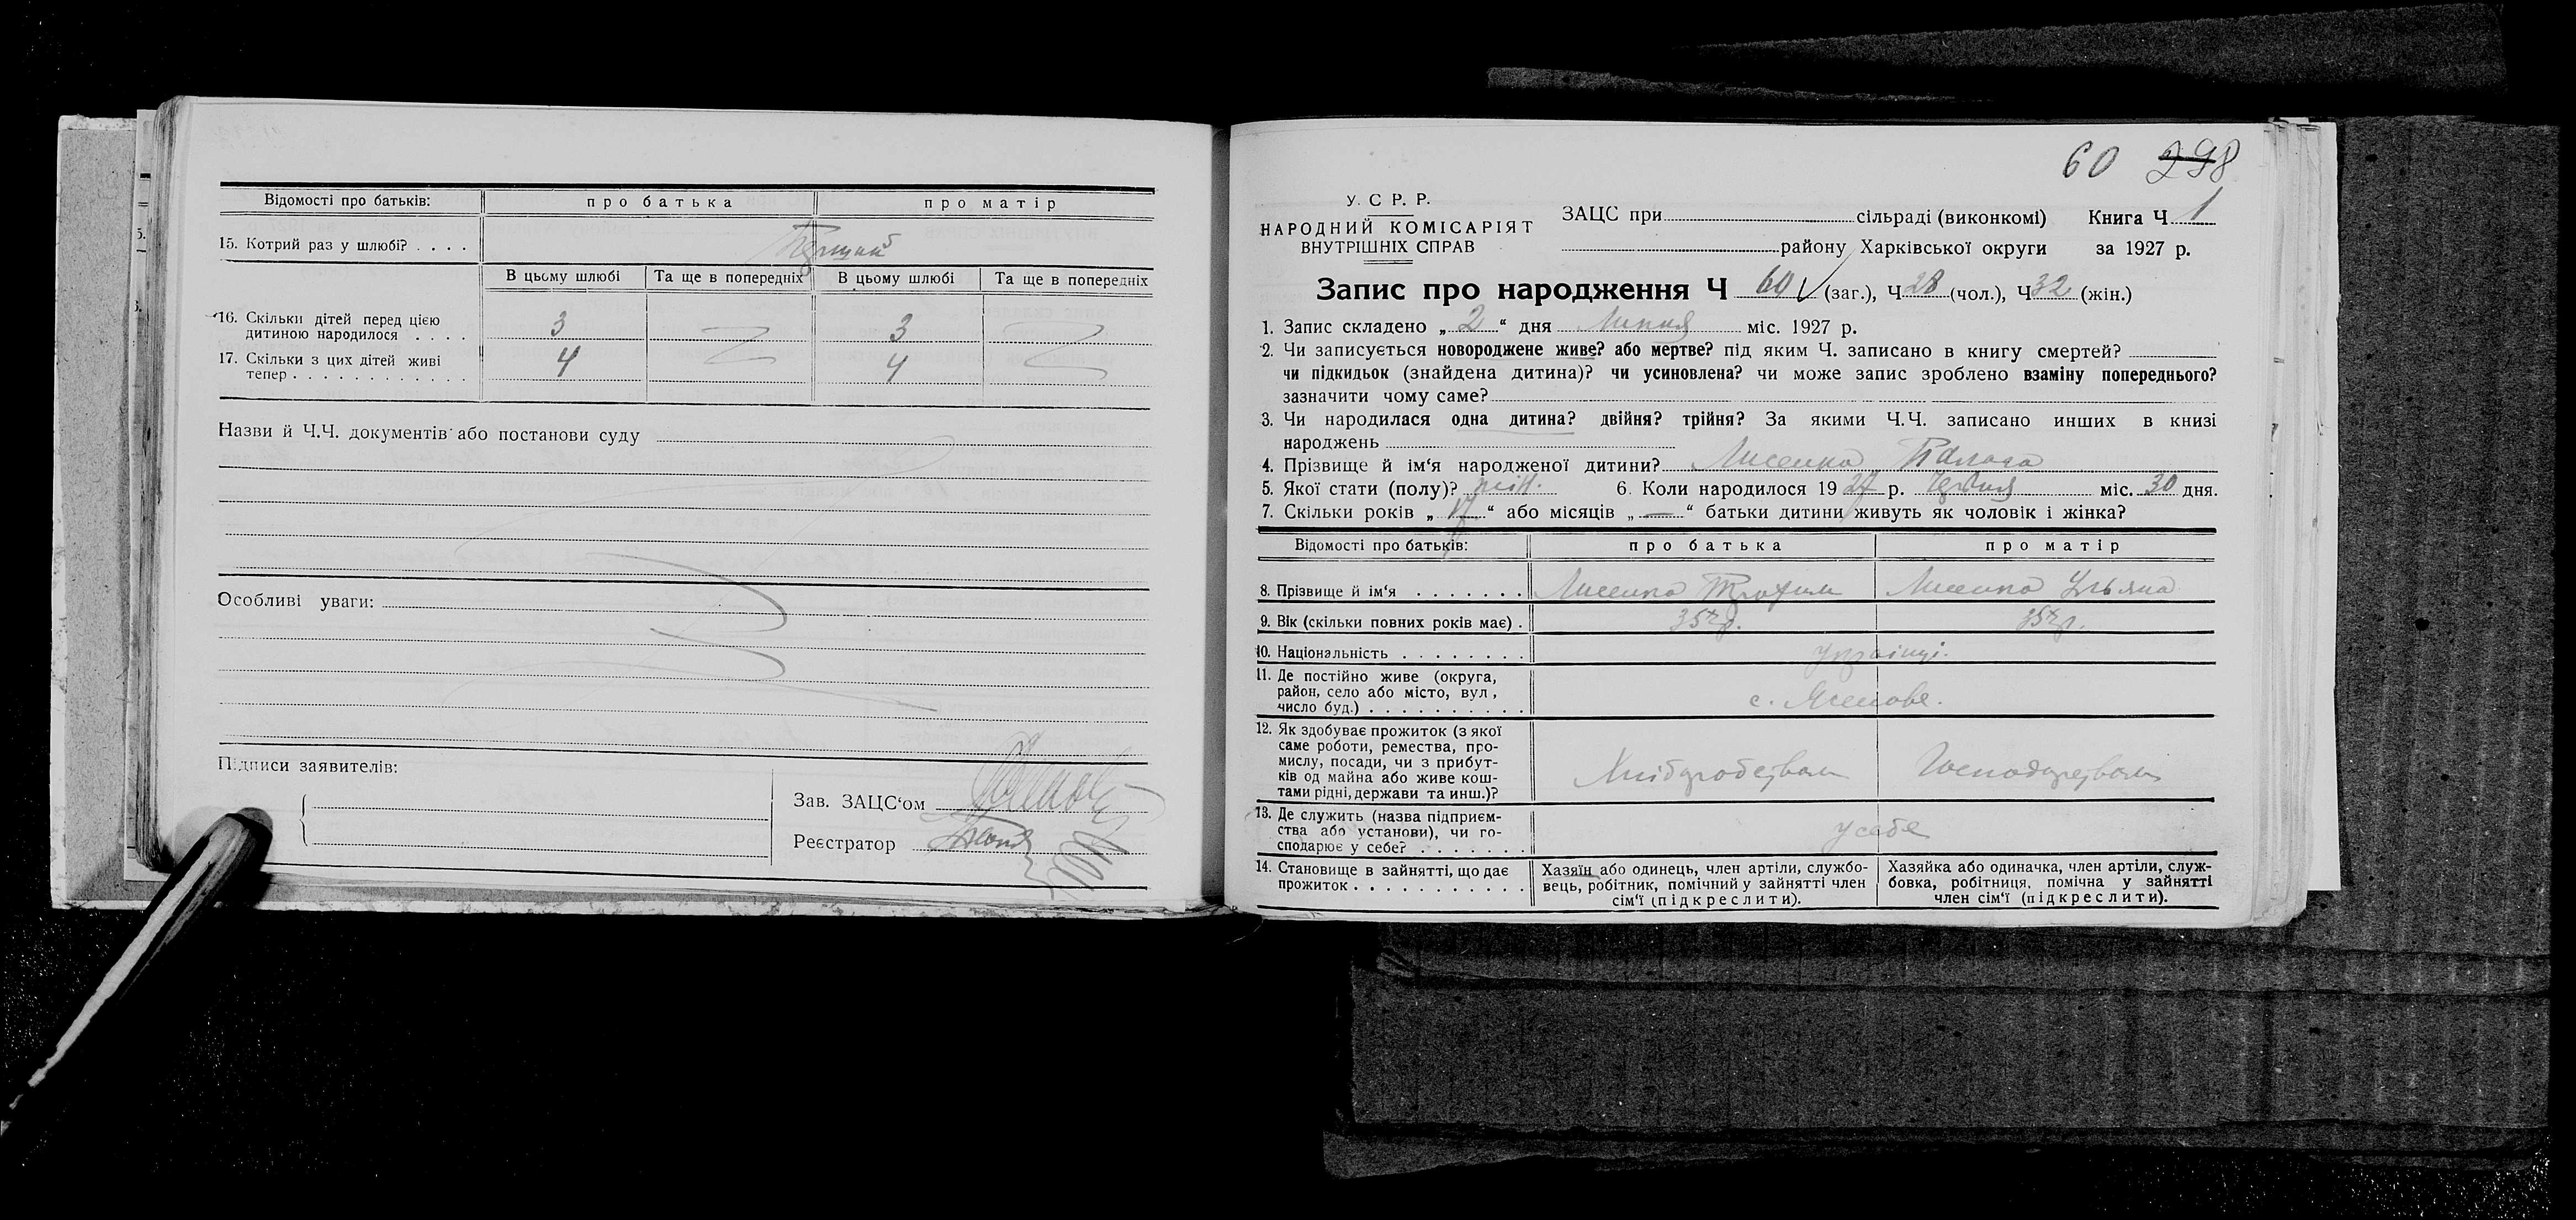 Відомості про батьків: про батька про матір
15. Котрий раз у шлюбі? . . . . Перший
В цьому шлюбі Та ще в попередніх В цьому шлюбі Та ще в попередніх
16. Скільки дітей перед цією
дитиною народилося . . . . 3 3
17. Скільки з цих дітей живі
тепер . . . . . . . . . . . . 4 4
Назви й Ч.Ч. документів або постанови суду
Особливі уваги:
Підписи заявителів:
Зав. ЗАЦС‘ом
Реєстратор
60 298
У. С. Р. Р.
НАРОДНИЙ КОМІСАРІЯТ
ВНУТРІШНІХ СПРАВ
ЗАЦС при сільраді (виконкомі) Книга Ч. 1
району Харківської округи за 1927 р.
Запис про народження Ч 60 (заг.), Ч 28 (чол.), Ч 32 (жін.)
1. Запис складено „ 2 “ дня Липня міс. 1927 р.
2. Чи записується новороджене живе? або мертве? під яким Ч. записано в книгу смертей?
чи підкидьок (знайдена дитина)? чи усиновлена? чи може запис зроблено взаміну попереднього?
зазначити чому саме?
3. Чи народилася одна дитина? двійня? трійня? За якими Ч.Ч. записано инших в книзі
народжень
4. Прізвище й ім‘я народженої дитини? Лисенко
5. Якої стати (полу)? жін. 6. Коли народилося 19 27 р. Червня міс. 30 дня.
7. Скільки років „ 17 “ або місяців „ — “ батьки дитини живуть як чоловік і жінка?
Відомості про батьків: про батька про матір
8. Прізвище й ім‘я . . . . . . . Лисенко Трохим Лисенко Ульяна
9. Вік (скільки повних років має) . 35 р. 35 р.
10. Національність . . . . . . . . Українці.
11. Де постійно живе (округа,
район, село або місто, вул.,
число буд.) . . . . . . . . . . с. Ясенове.
12. Як здобуває прожиток (з якої
саме роботи, ремества, про-
мислу, посади, чи з прибут-
ків од майна або живе кош-
тами рідні, держави та инш.)?
13. Де служить (назва підприєм-
ства або установи), чи го-
сподарює у себе? . . . . . . . у себе
14. Становище в зайнятті, що дає
прожиток . . . . . . . . . . .
Хазяїн або одинець, член артіли, службо-
вець, робітник, помічний у зайнятті член
сім‘ї (підкреслити).
Хазяйка або одиначка, член артіли, служ-
бовка, робітниця, помічна у зайнятті
член сім‘ї (підкреслити).